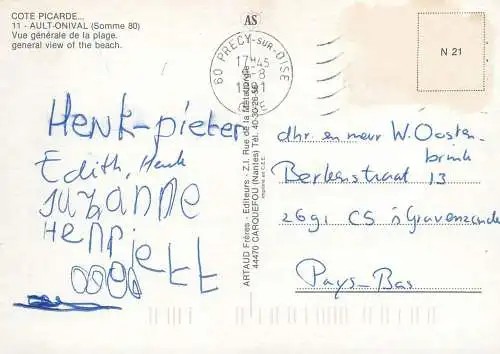 COTE PICARDE...
11 - AULT-ONIVAL (Somme 80)
Vue générale de la plage.
general view of the beach.
AS
60 PRECY-SUR-OISE
17H45
1991
N 21
Henk-pieter
Edith, Henk
SuzANNE
Henriett
ARTAUD Frères - Editeurs - Z.I. Rue de la Métallurgie
44470 CARQUEFOU (Nantes) Tél. 40-30-26-58
dhr. en mevr W. Oosten-
brink
Berkenstraat 13
2691 CS 's Gravenzande
Pays-Bas